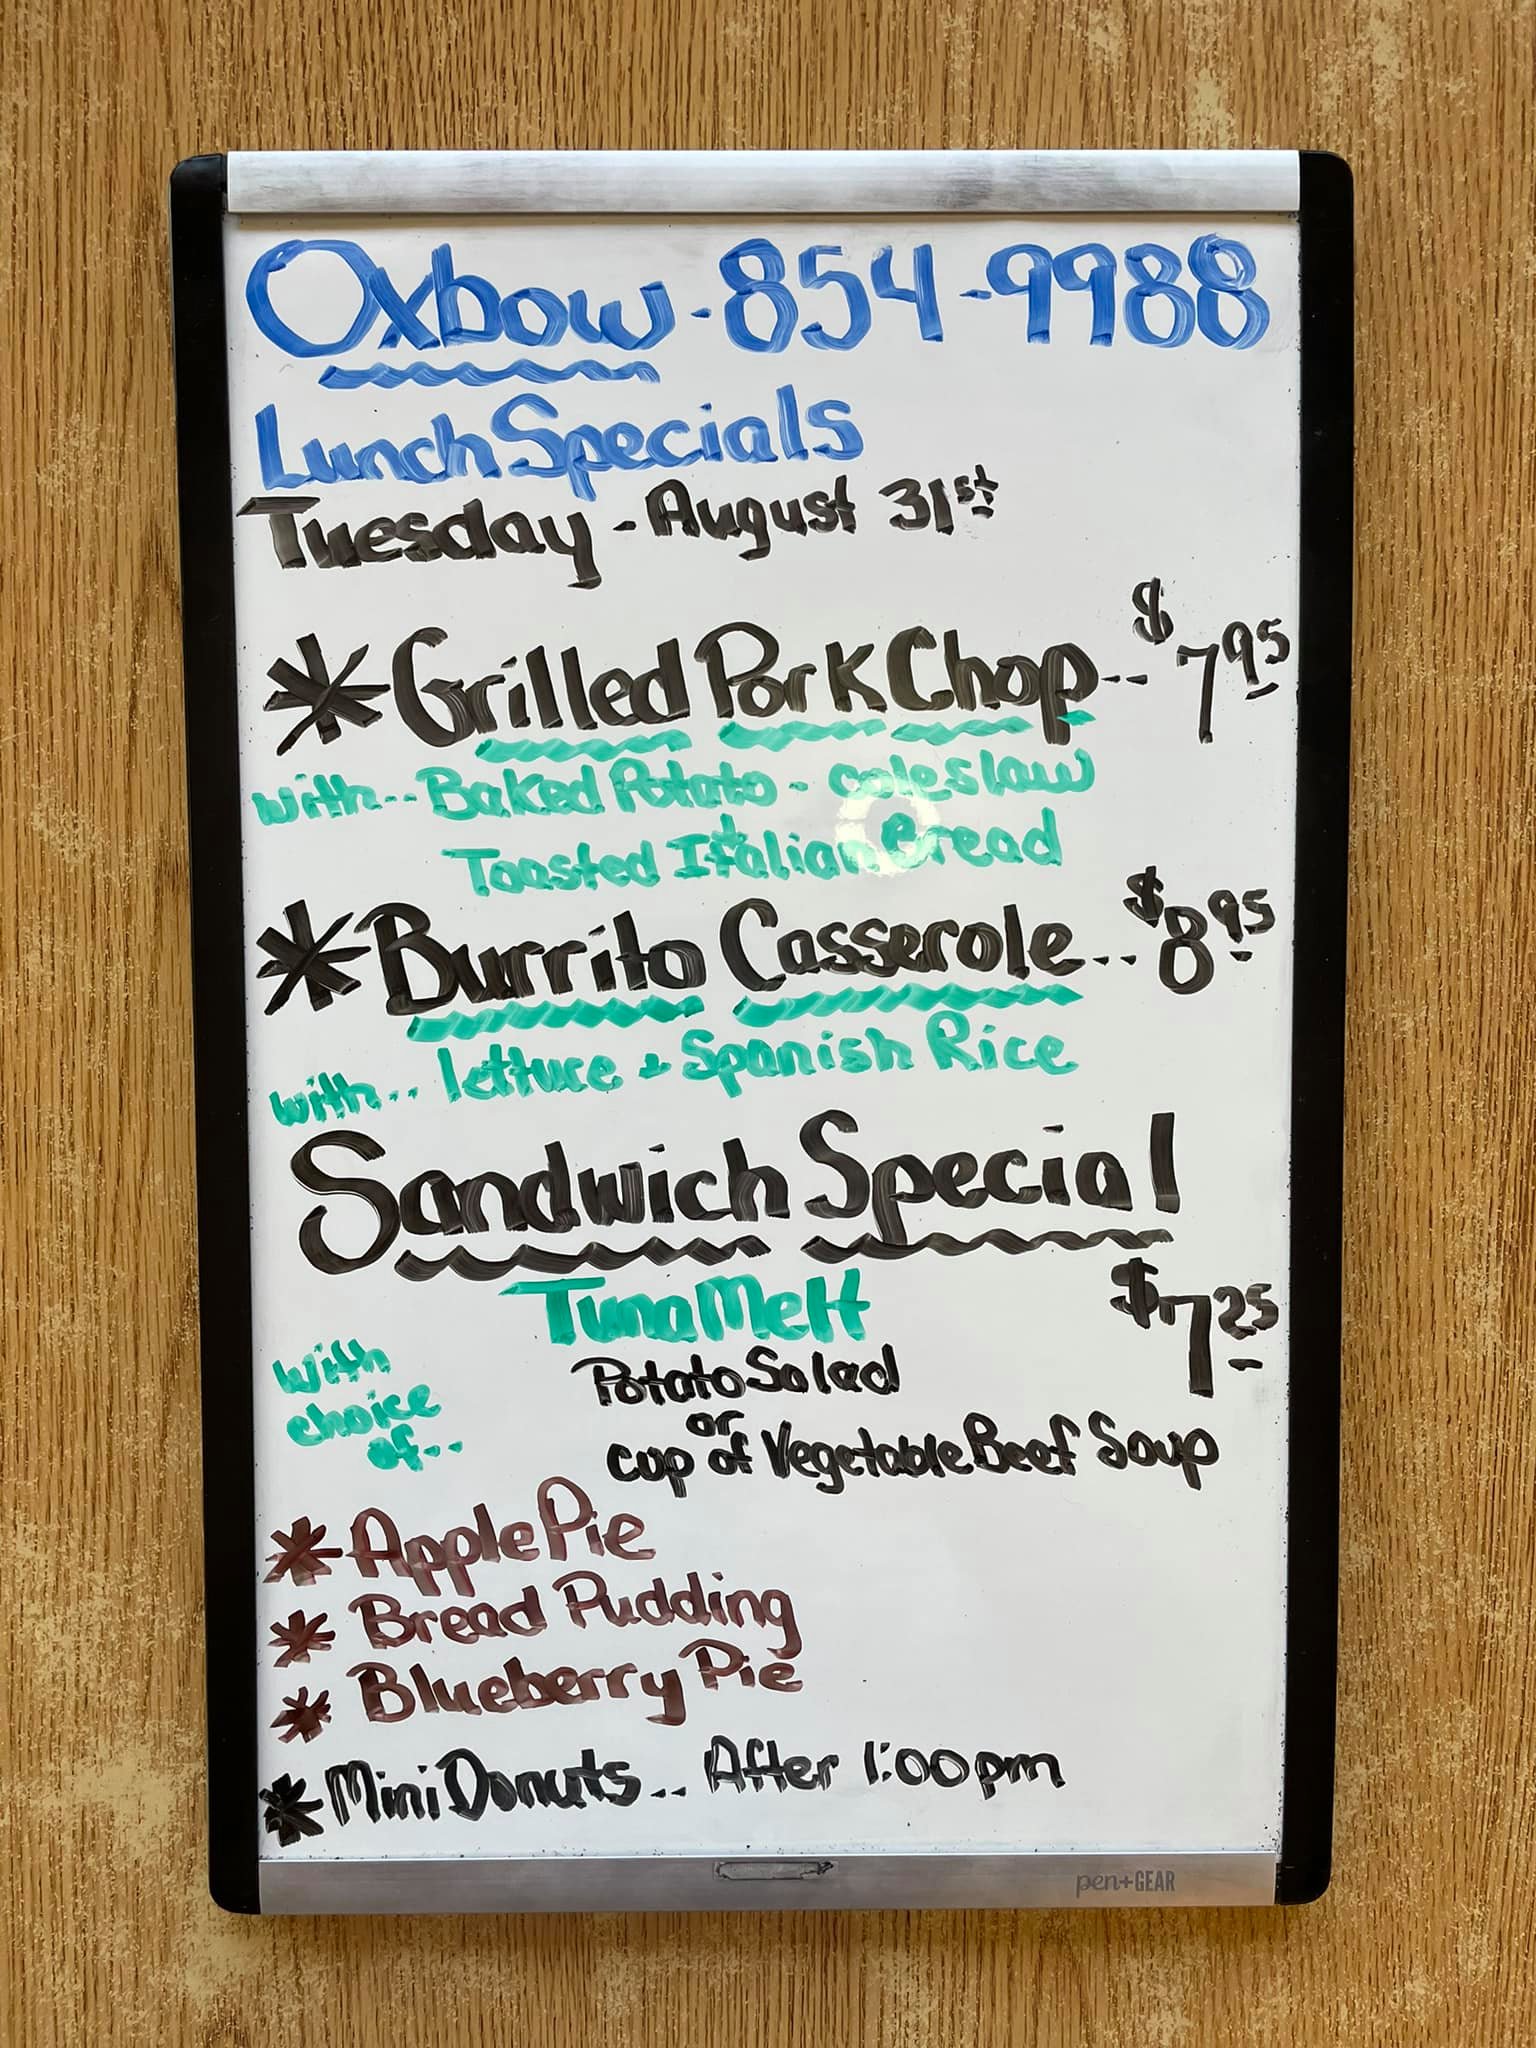 Oxbow - 854-9988
Lunch Specials
Tuesday - August 31st
* Grilled Pork Chop -- $7.95
with.. Baked Potato - coleslaw
+
Toasted Italian Bread
* Burrito Casserole... $8.95
with.. lettuce + Spanish Rice
Sandwich Special
Tuna Melt $7.25
with choice of..
Potato Salad
or
cup of Vegetable Beef Soup
* Apple Pie
* Bread Pudding
* Blueberry Pie
* Mini Donuts.. After 1:00pm
pen+GEAR